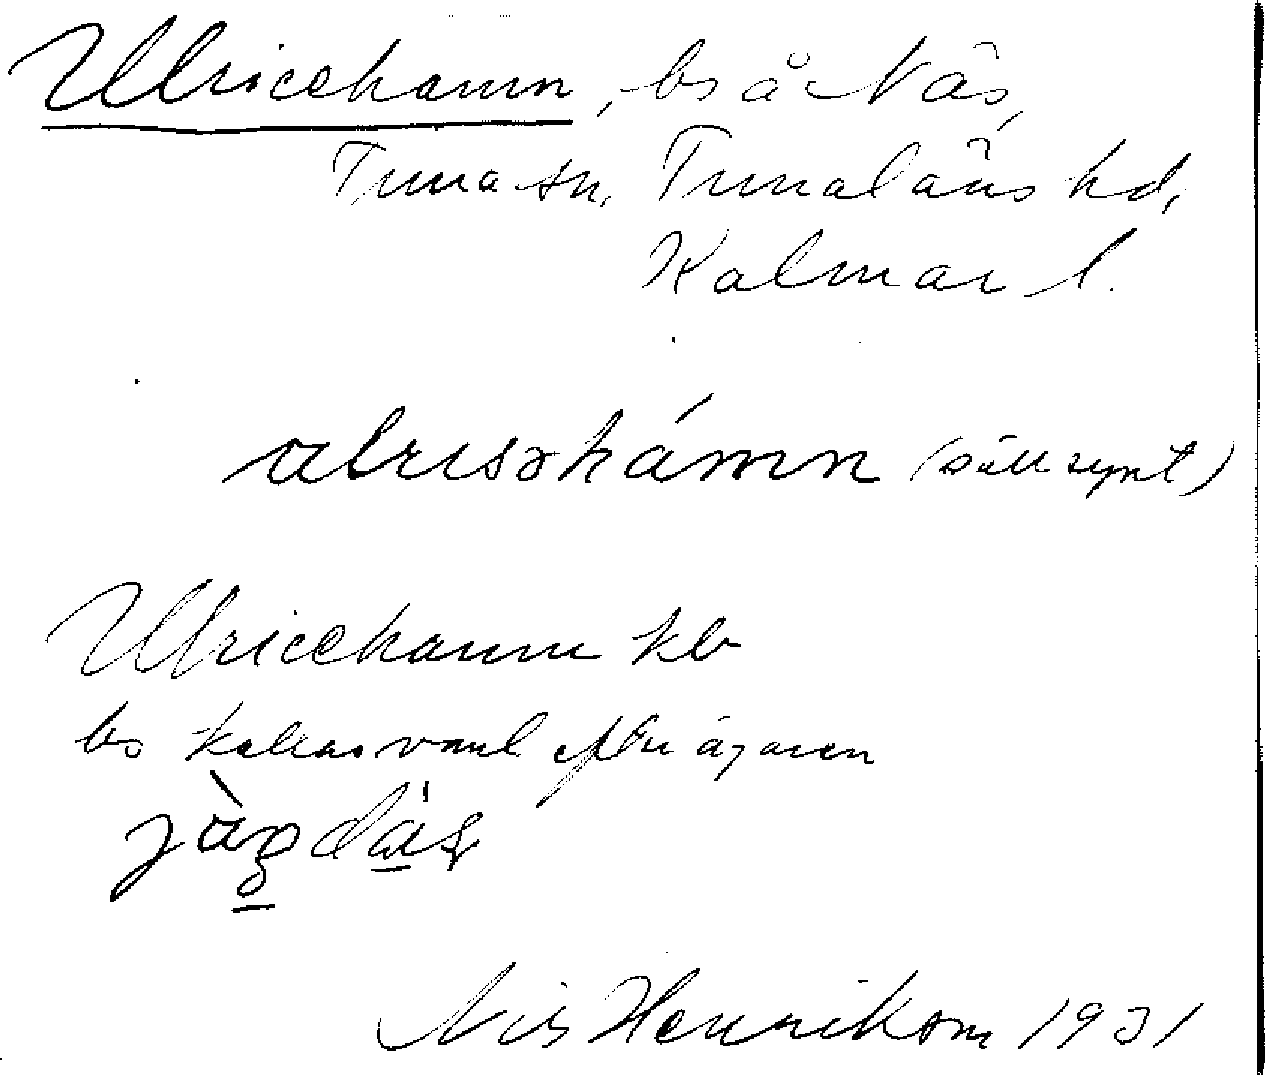 Ulricehamn, bs å Näs,
Tuna sn, Tunaläns hd,
Kalmar l.
ulrisəhámn (sällsynt)
Ulricehamn kb
bs kallas vanl efter ägaren
Nils Henrikson 1931